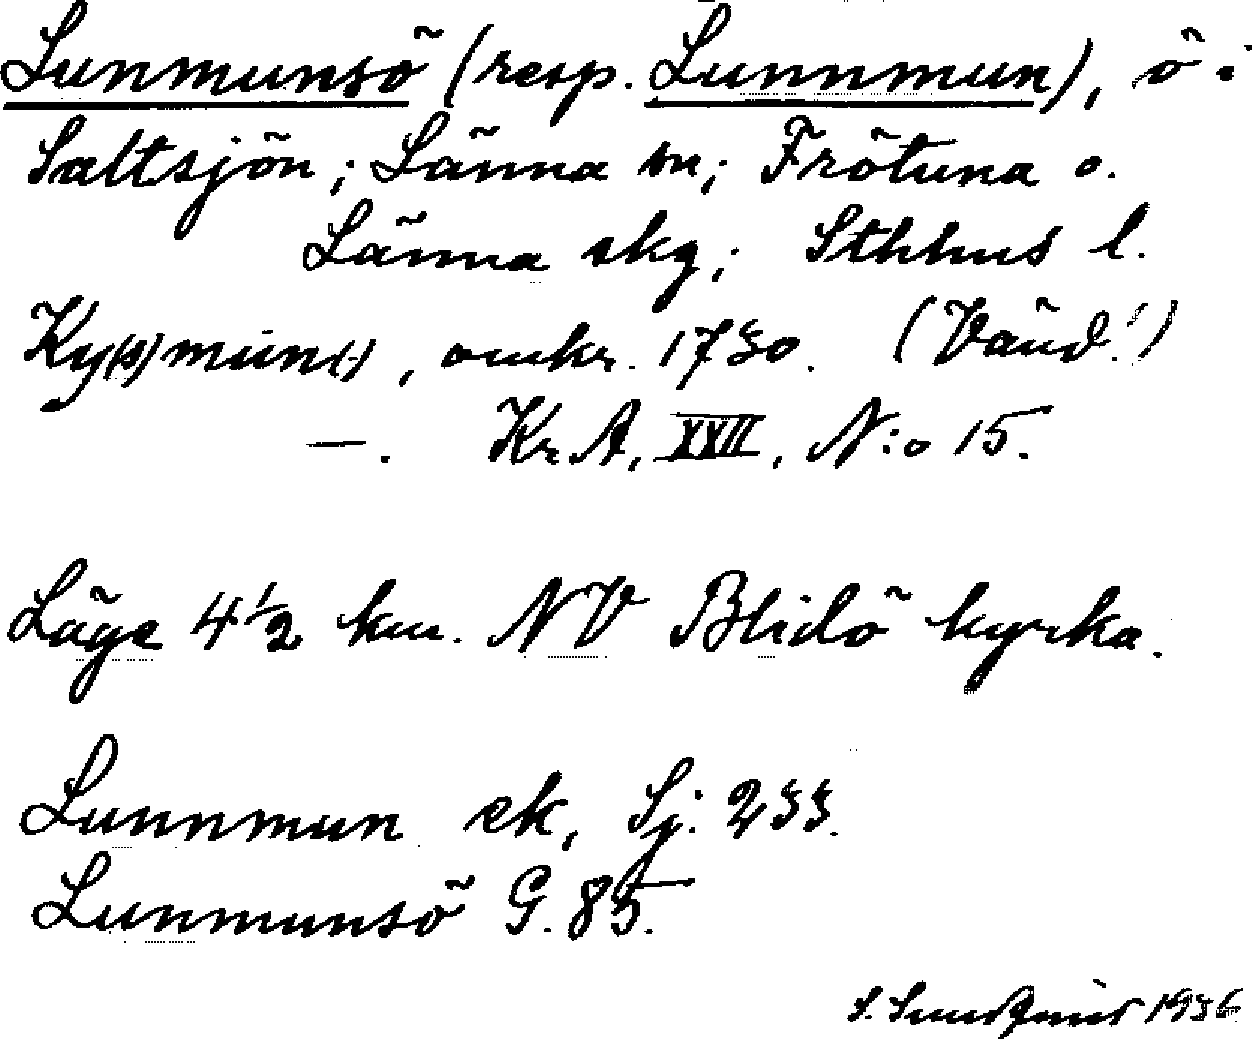 Lunmunsö (resp. Lunnmun), ö i
Saltsjön; Länna sn; Frötuna o.
Länna skg; Sthlms l.
Ky(s)mun(-), omkr. 1730. (Vänd!)
—. Kr.A, XXII, N:o 15.
Läge 4½ km. NV Blidö kyrka.
Lunnmun ek, Sj. 233.
Lunmunsö G. 85.
S. Sundqvist 1936